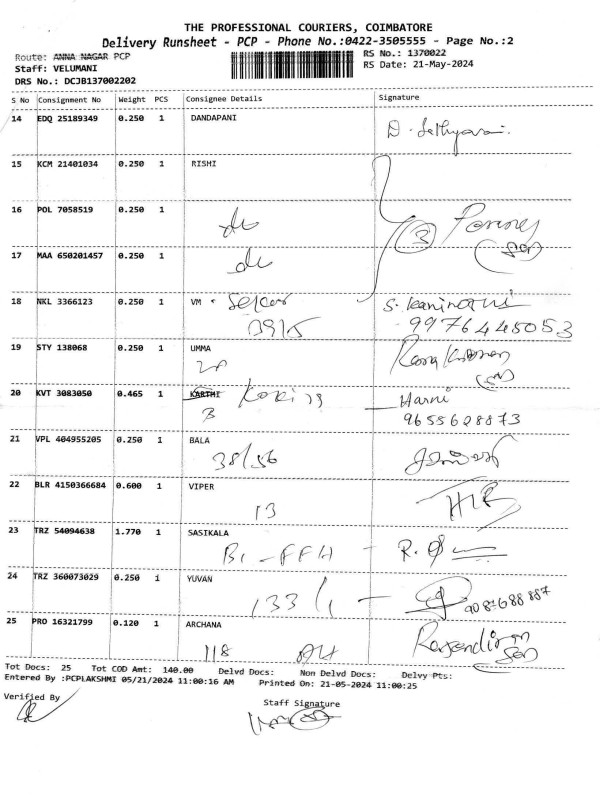 THE PROFESSIONAL COURIERS, COIMBATORE
Delivery Runsheet - PCP - Phone No.:0422-3505555 - Page No.:2
Route: ANNA NAGAR PCP
RS No.: 1370022
Staff: VELUMANI
RS Date: 21-May-2024
DRS No.: DCJB137002202
S No Consignment No Weight PCS Consignee Details Signature
14 EDQ 25189349 0.250 1 DANDAPANI D. Sathyavani.
15 KCM 21401034 0.250 1 RISHI
16 POL 7058519 0.250 1 do 3
17 MAA 650201457 0.250 1 do
18 NKL 3366123 0.250 1 VM
9976445053
19 STY 138068 0.250 1 UMMA
20 KVT 3083050 0.465 1 KARTHI Harni
9655628873
21 VPL 404955205 0.250 1 BALA
38/56
22 BLR 4150366684 0.600 1 VIPER
13
23 TRZ 54094638 1.770 1 SASIKALA
24 TRZ 360073029 0.250 1 YUVAN
133/1
25 PRO 16321799 0.120 1 ARCHANA
118 Rajendiran
Tot Docs: 25 Tot COD Amt: 140.00 Delvd Docs: Non Delvd Docs: Delvy Pts:
Entered By :PCPLAKSHMI 05/21/2024 11:00:16 AM Printed On: 21-05-2024 11:00:25
Verified By
Staff Signature